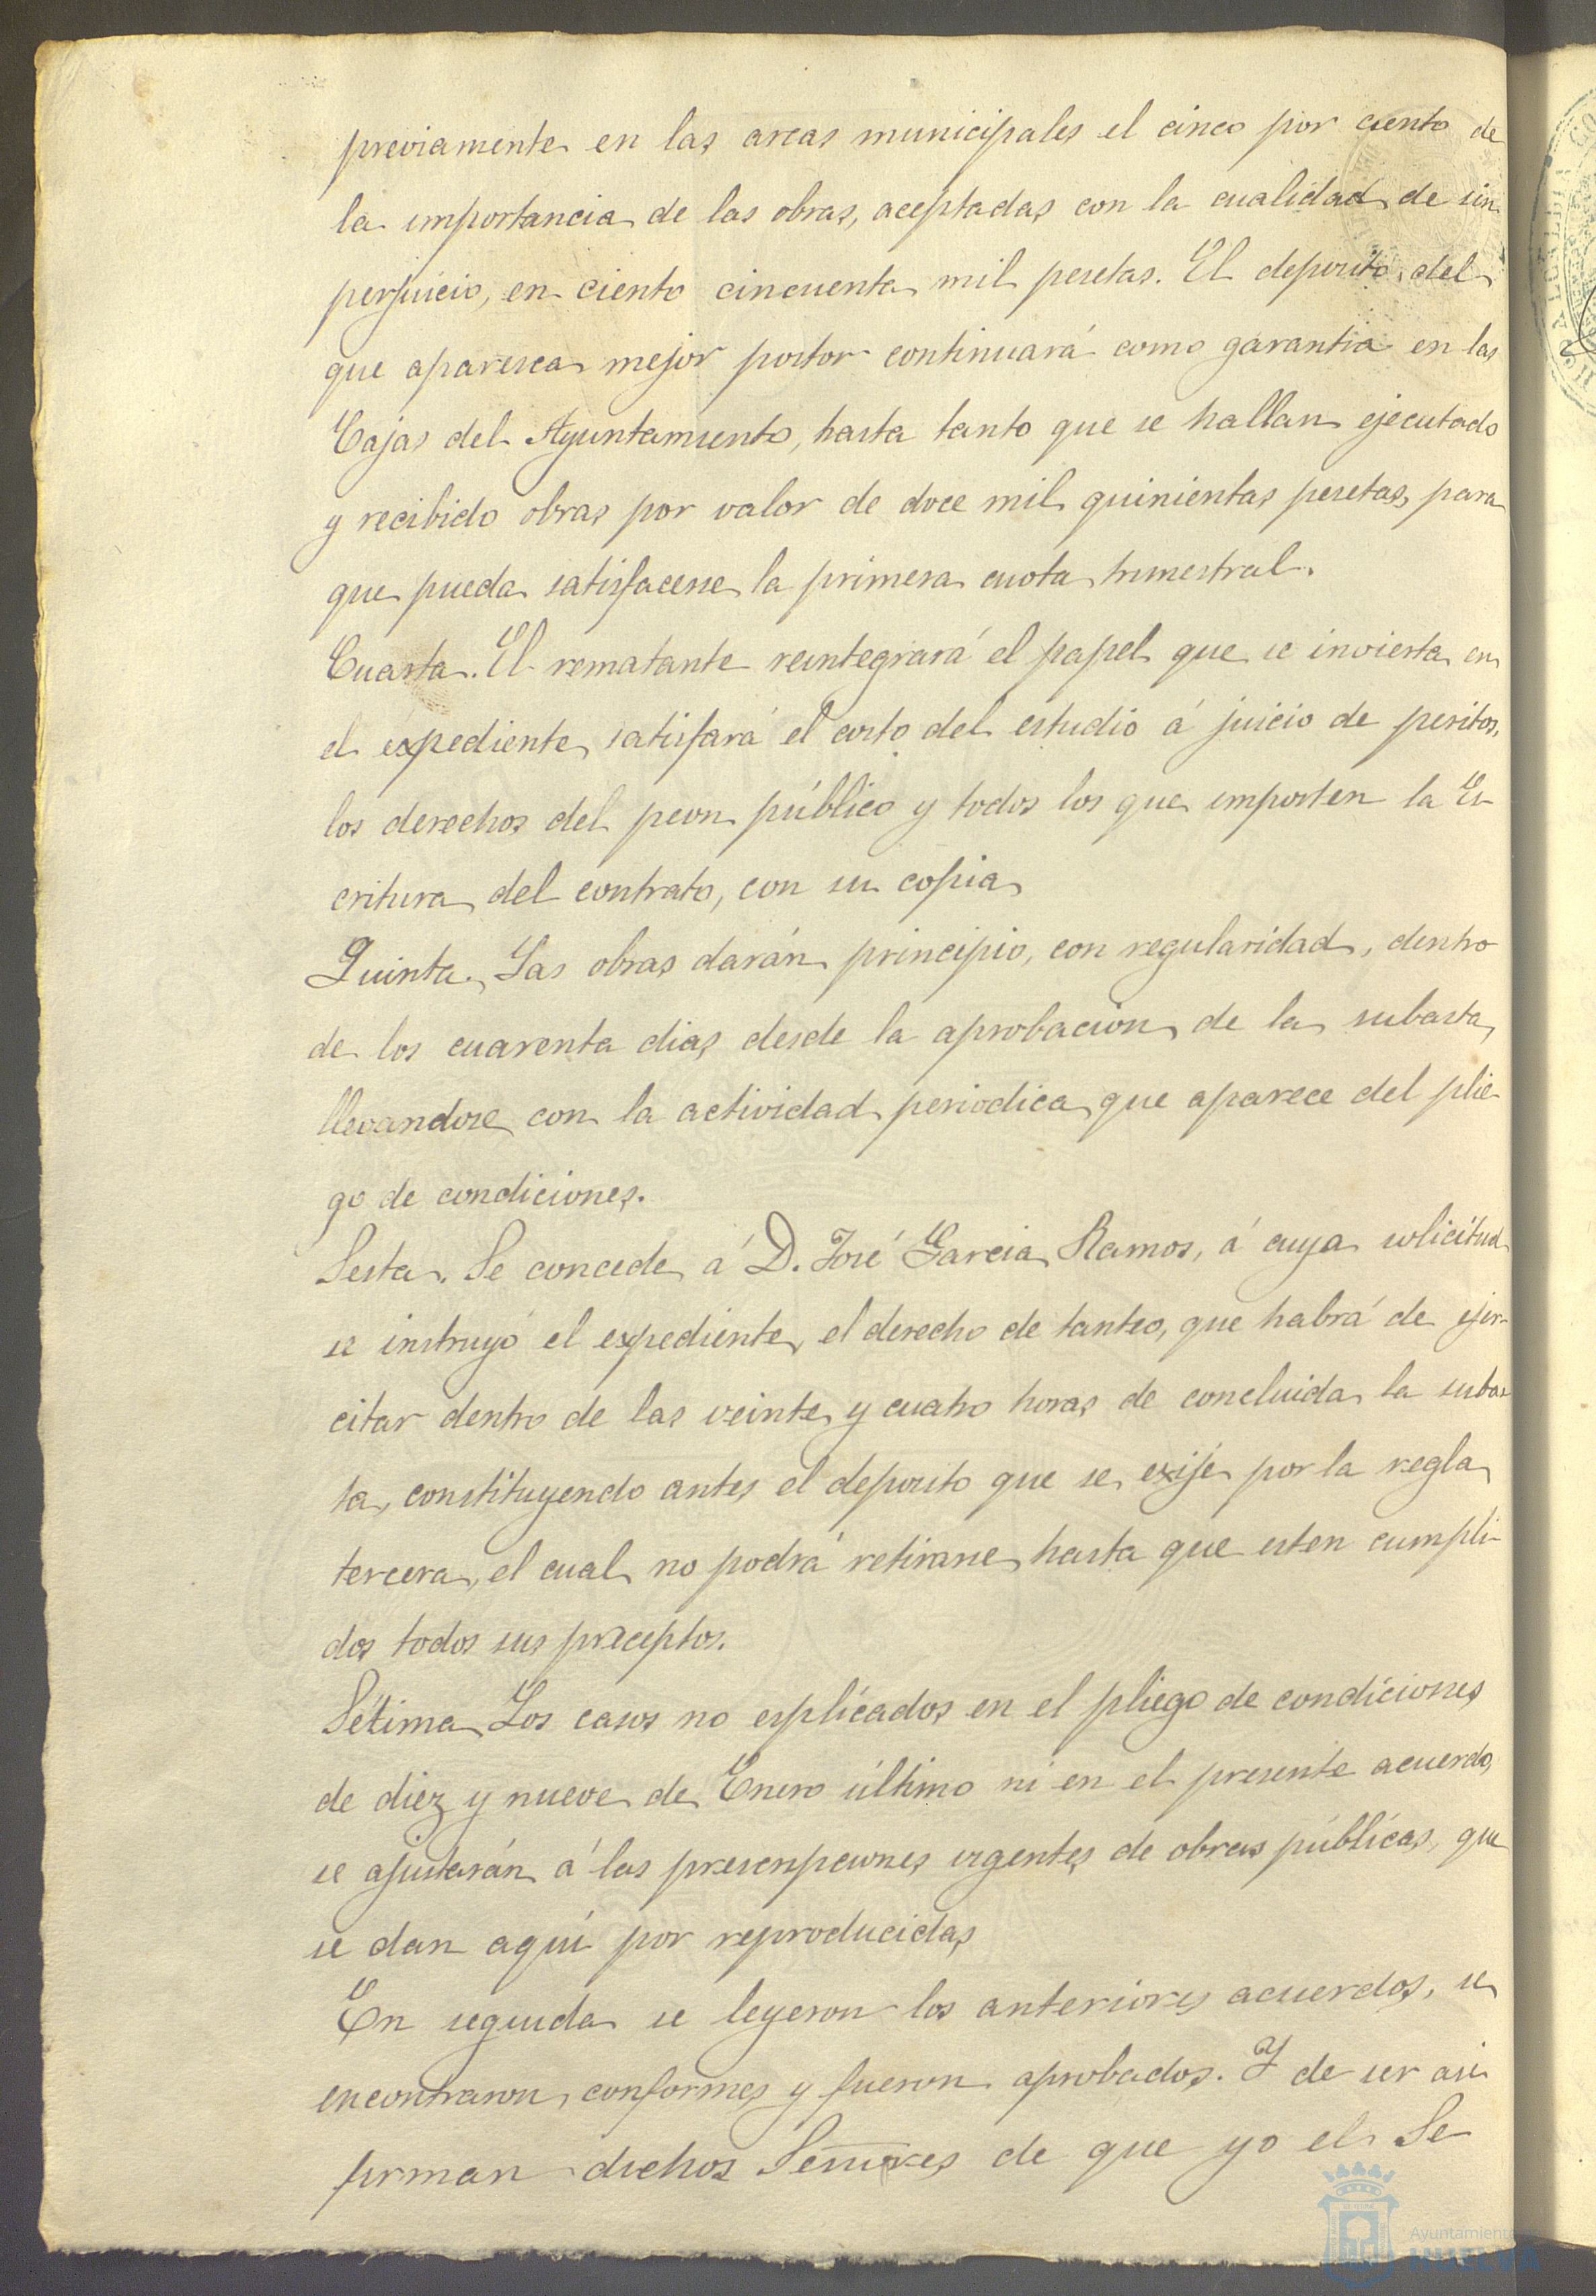 previamente en las arcas municipales el cinco por ciento de
la importancia de las obras, aceptadas con la cualidad de sin
perjuicio, en ciento cincuenta mil pesetas. El deposito del
que aparesca mejor postor continuará como garantia en las
Cajas del Ayuntamiento, hasta tanto que se hallan ejecutado
y recibido obras por valor de doce mil quinientas pesetas, para
que pueda satisfacerse la primera cuota trimestral.
Cuarta. El rematante reintegrará el papel que se invierta en
el expediente, satisfará el costo del estudio á juicio de peritos,
los derechos del peon público y todos los que importen la Es
critura del contrato, con su copia
Quinta. Las obras darán principio, con regularidad, dentro
de los cuarenta dias desde la aprobacion de la subasta,
llevandose con la actividad periodica que aparece del plie-
go de condiciones.
Sesta. Se concede á D. José Garcia Ramos, á cuya solicitud
se instruyó el expediente, el derecho de tanteo, que habrá de ejer-
citar dentro de las veinte y cuatro horas de concluida la subas
ta, constituyendo antes el deposito que se exije por la regla
tercera, el cual no podrá retirarse hasta que esten cumpli-
dos todos sus preceptos.
Sétima Los casos no esplicados en el pliego de condiciones
de diez y nueve de Enero último ni en el presente acuerdo,
se ajustarán á las prescripciones vigentes de obras públicas, que
se dan aquí por reproducidas
En seguida se leyeron los anteriores acuerdos, se
encontraron conformes y fueron aprobados. Y de ser asi
firman dichos Señores de que yo el Se
Ayuntamiento
HUELVA